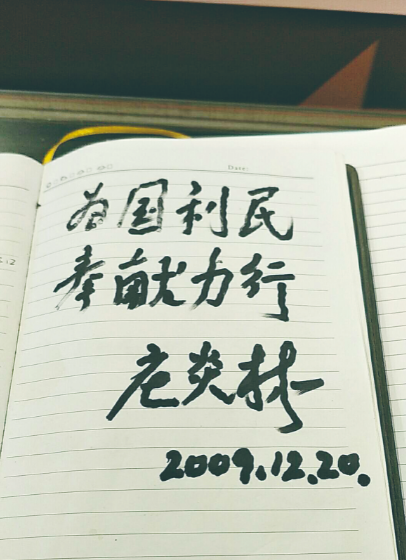 Date:
为国利民
奉献力行
庄炎林
2009.12.20.